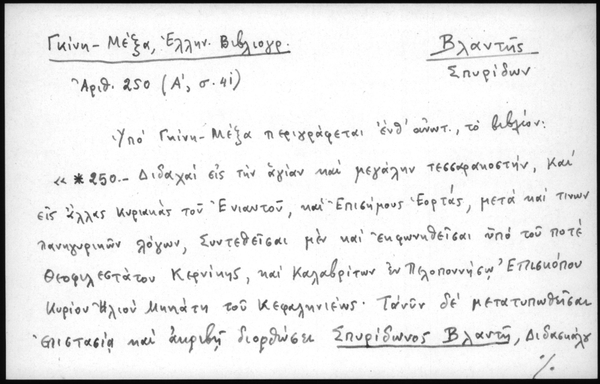 Γκίνη - Μέξα, Ἑλλην. Βιβλιογρ.
Βλαντῆς
Σπυρίδων
Ἀριθ. 250 (Α', σ. 41)
Ὑπό Γκίνη - Μέξα περιγράφεται ἐνθ' ἀνωτ., τό βιβλίον:
« *250.- Διδαχαί εἰς τήν ἁγίαν καί μεγάλην τεσσαρακοστήν, καί
εἰς ἄλλας κυριακάς τοῦ Ἐνιαυτοῦ, καί Ἐπισήμους Ἑορτάς, μετά καί τινων
πανηγυρικῶν λόγων, Συντεθεῖσαι μέν καί ἐκφωνηθεῖσαι ὑπό τοῦ ποτέ
Θεοφιλεστάτου Κερνίκης, καί Καλαβρίτων ἐν Πελοποννήσῳ Ἐπισκόπου
Κυρίου Ἠλιού Μηνιάτη τοῦ Κεφαληνιέως. Τανῦν δέ μετατυπωθεῖσαι
ἐπιστασίᾳ καί ἀκριβῇ διορθώσει Σπυρίδωνος Βλαντῆ, Διδασκάλου
%